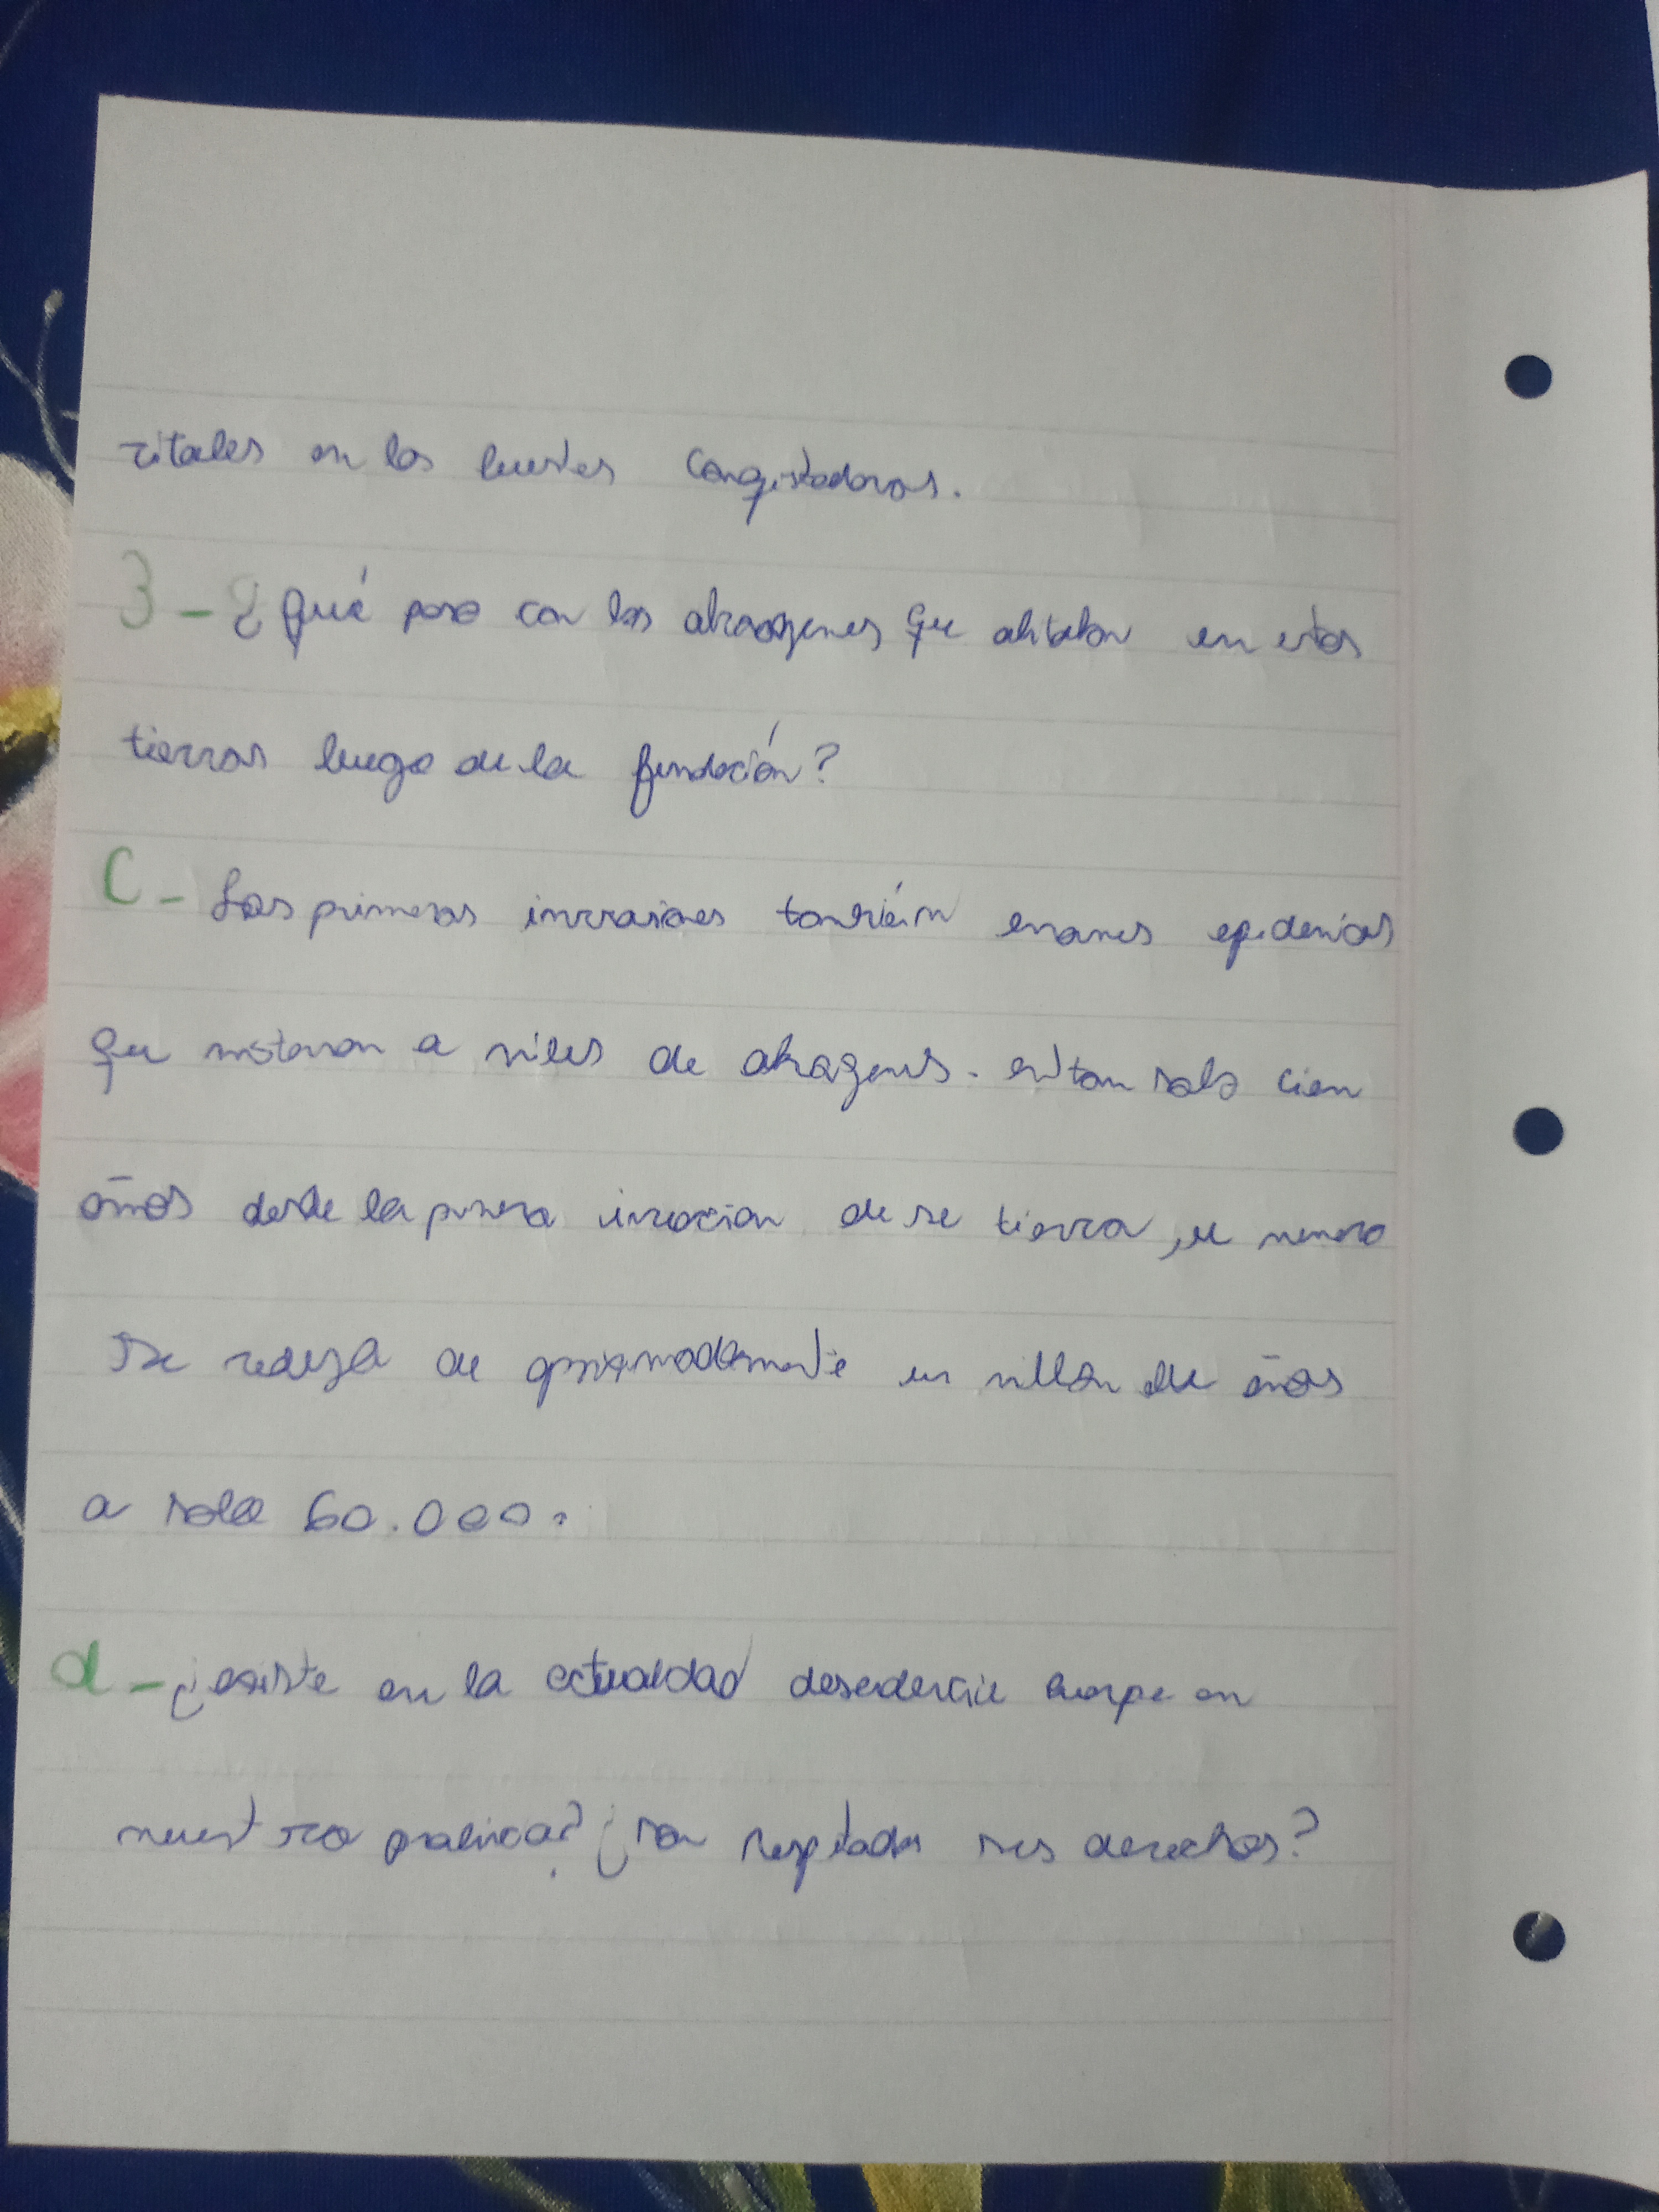 ritales en las huestes conqistadoras.
3-¿Qué paso con los aborogenes que abitabon en estas
tierras luego de la fundación?
C- Las primeras invrasiones también enormes epidemias
que mataron a miles de aborogenes. en tan solo cien
años desde la primera invacion de se tierra, el numero
se redujo de aproximadamente un millón de años
a solo 60.000.
d-¿existe en la actualdad europe en
nuestra provincia? ¿son respetados sus derechos?